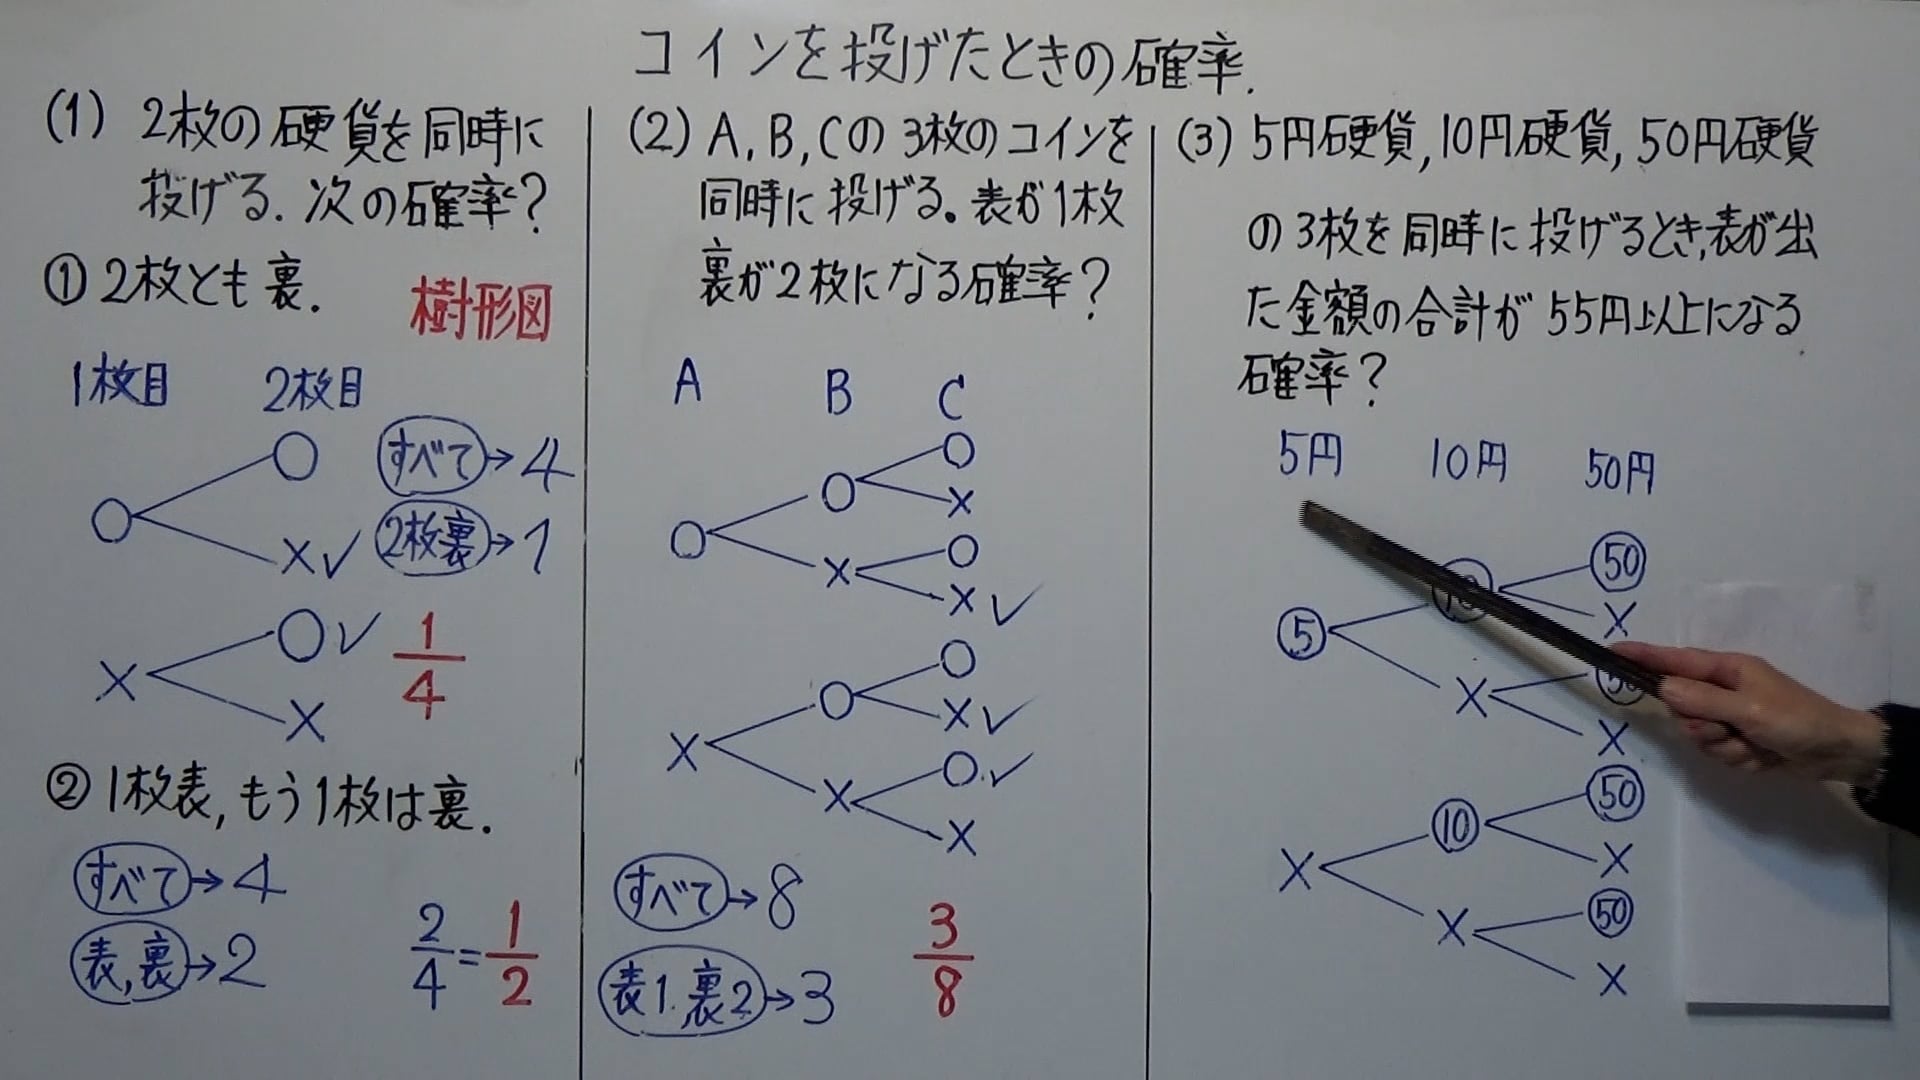 コインを投げたときの確率.
(1) 2枚の硬貨を同時に
投げる. 次の確率?
① 2枚とも裏.
樹形図
1枚目 2枚目
○ ○
× ✓
× ○ ✓
×
すべて→4
2枚裏→1
1/4
② 1枚表,もう1枚は裏.
すべて→4
表,裏→2
2/4=1/2
(2) A,B,Cの3枚のコインを
同時に投げる。表が1枚
裏が2枚になる確率?
A B C
○ ○ ○
×
× ○
× ✓
× ○ ○
× ✓
× ○ ✓
×
すべて→8
表1.裏2→3
3/8
(3) 5円硬貨,10円硬貨,50円硬貨
の3枚を同時に投げるとき,表が出
た金額の合計が55円以上になる
確率?
5円 10円 50円
⑤ ⑩ ㊿
×
× ㊿
×
× ⑩ ㊿
×
× ㊿
×